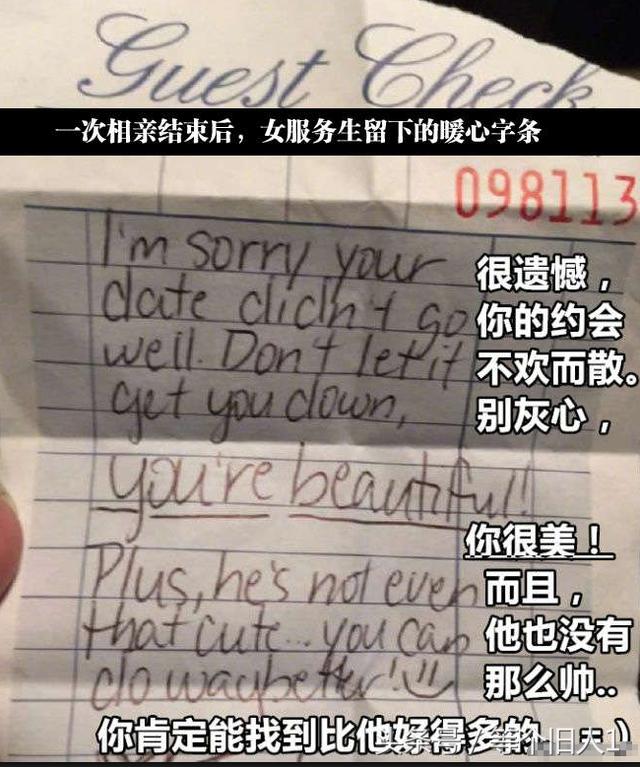 Guest Check
一次相亲结束后，女服务生留下的暖心字条
098113
I'm sorry your 很遗憾，
date didn't go 你的约会
well. Don't let it 不欢而散。
get you down, 别灰心，
you're beautiful!
你很美！
Plus, he's not even 而且，
that cute... you can 他也没有
do way better! 那么帅..
你肯定能找到比他好得多的 : )